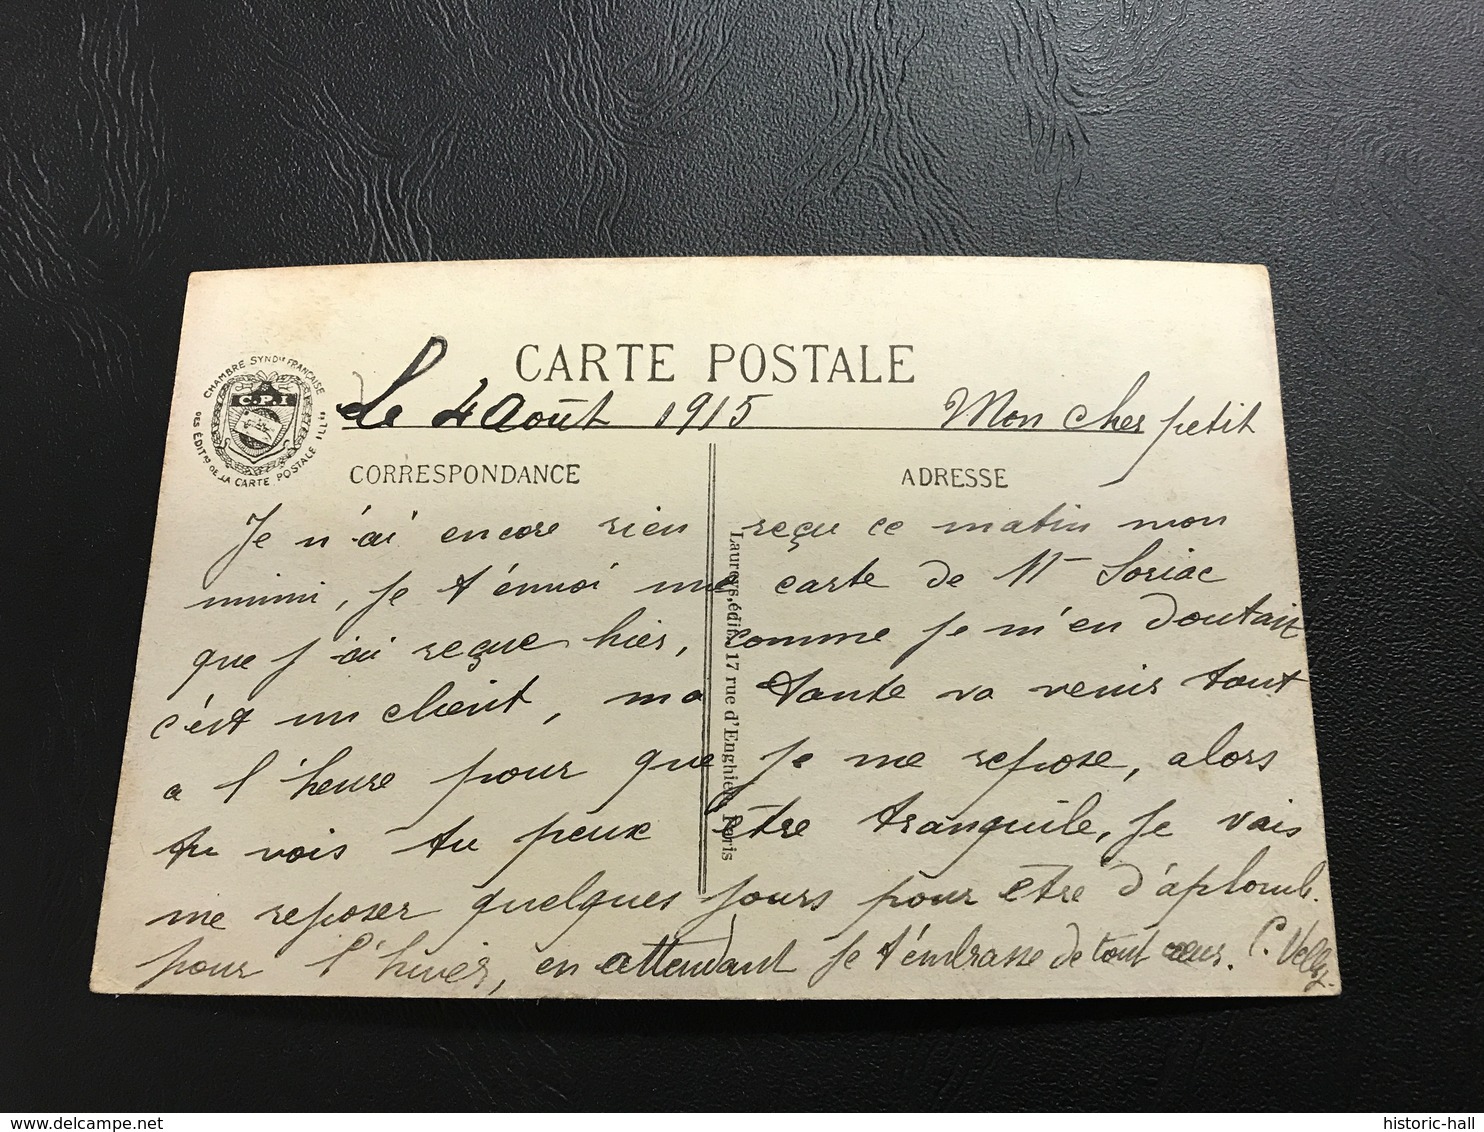 CARTE POSTALE
CHAMBRE SYND^le FRANÇAISE
DES ÉDIT^rs DE LA CARTE POSTALE ILL^ée
C.P.I
le 4 Août 1915 Mon cher petit
CORRESPONDANCE ADRESSE
Je n'ai encore rien reçu ce matin mon
mimi, je t'envoi une carte de Mr Soriac
que j'ai reçue hier, comme je m'en doutais
c'est un client, ma tante va venir tout
a l'heure pour que je me repose, alors
tu vois tu peux être tranquile, je vais
me reposer quelques jours pour etre d'aplomb.
pour l'hiver, en attendant je t'embrasse de tout cœur. C. Velly.
Laureys, édit. 17 rue d'Enghien, Paris
historic-hall